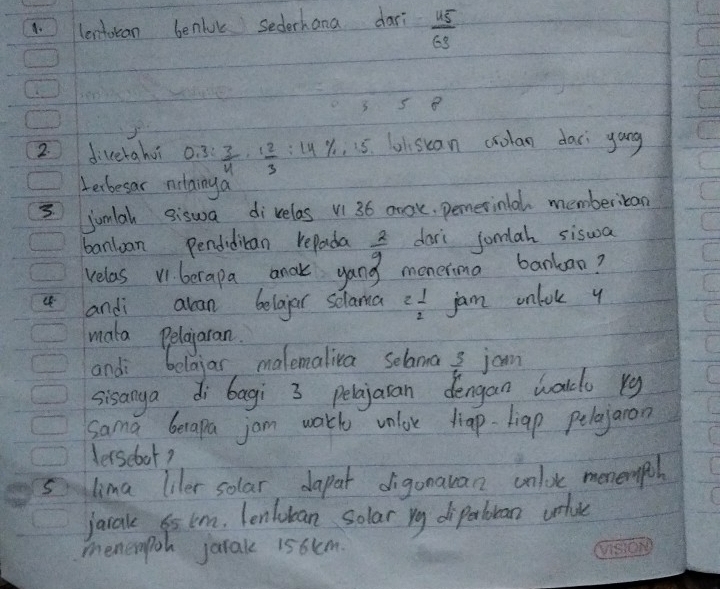 1. Tentukan bentuk sederhana dari 45/63
3 5 8
2. diketahui 0,3 : 3/4 . 12/3 : 14 %, 15. tuliskan urutan dari yang
terbesar nilainya
3. jumlah siswa di kelas VI 36 anak. pemerintah memberikan
bantuan pendidikan kepada 2/9 dari jumlah siswa
kelas VI. berapa anak yang menerima bantuan?
4 andi akan belajar selama 2 1/2 jam untuk 4
mata pelajaran.
andi belajar matematika selama 3/4 jam
sisanya di bagi 3 pelajaran dengan waktu yg
sama berapa jam waktu untuk tiap-tiap pelajaran
tersebut?
5 lima liter solar dapat digunakan untuk menempuh
jarak 65 km. tentukan solar yg diperlukan untuk
menempuh jarak 156 km.
VISION